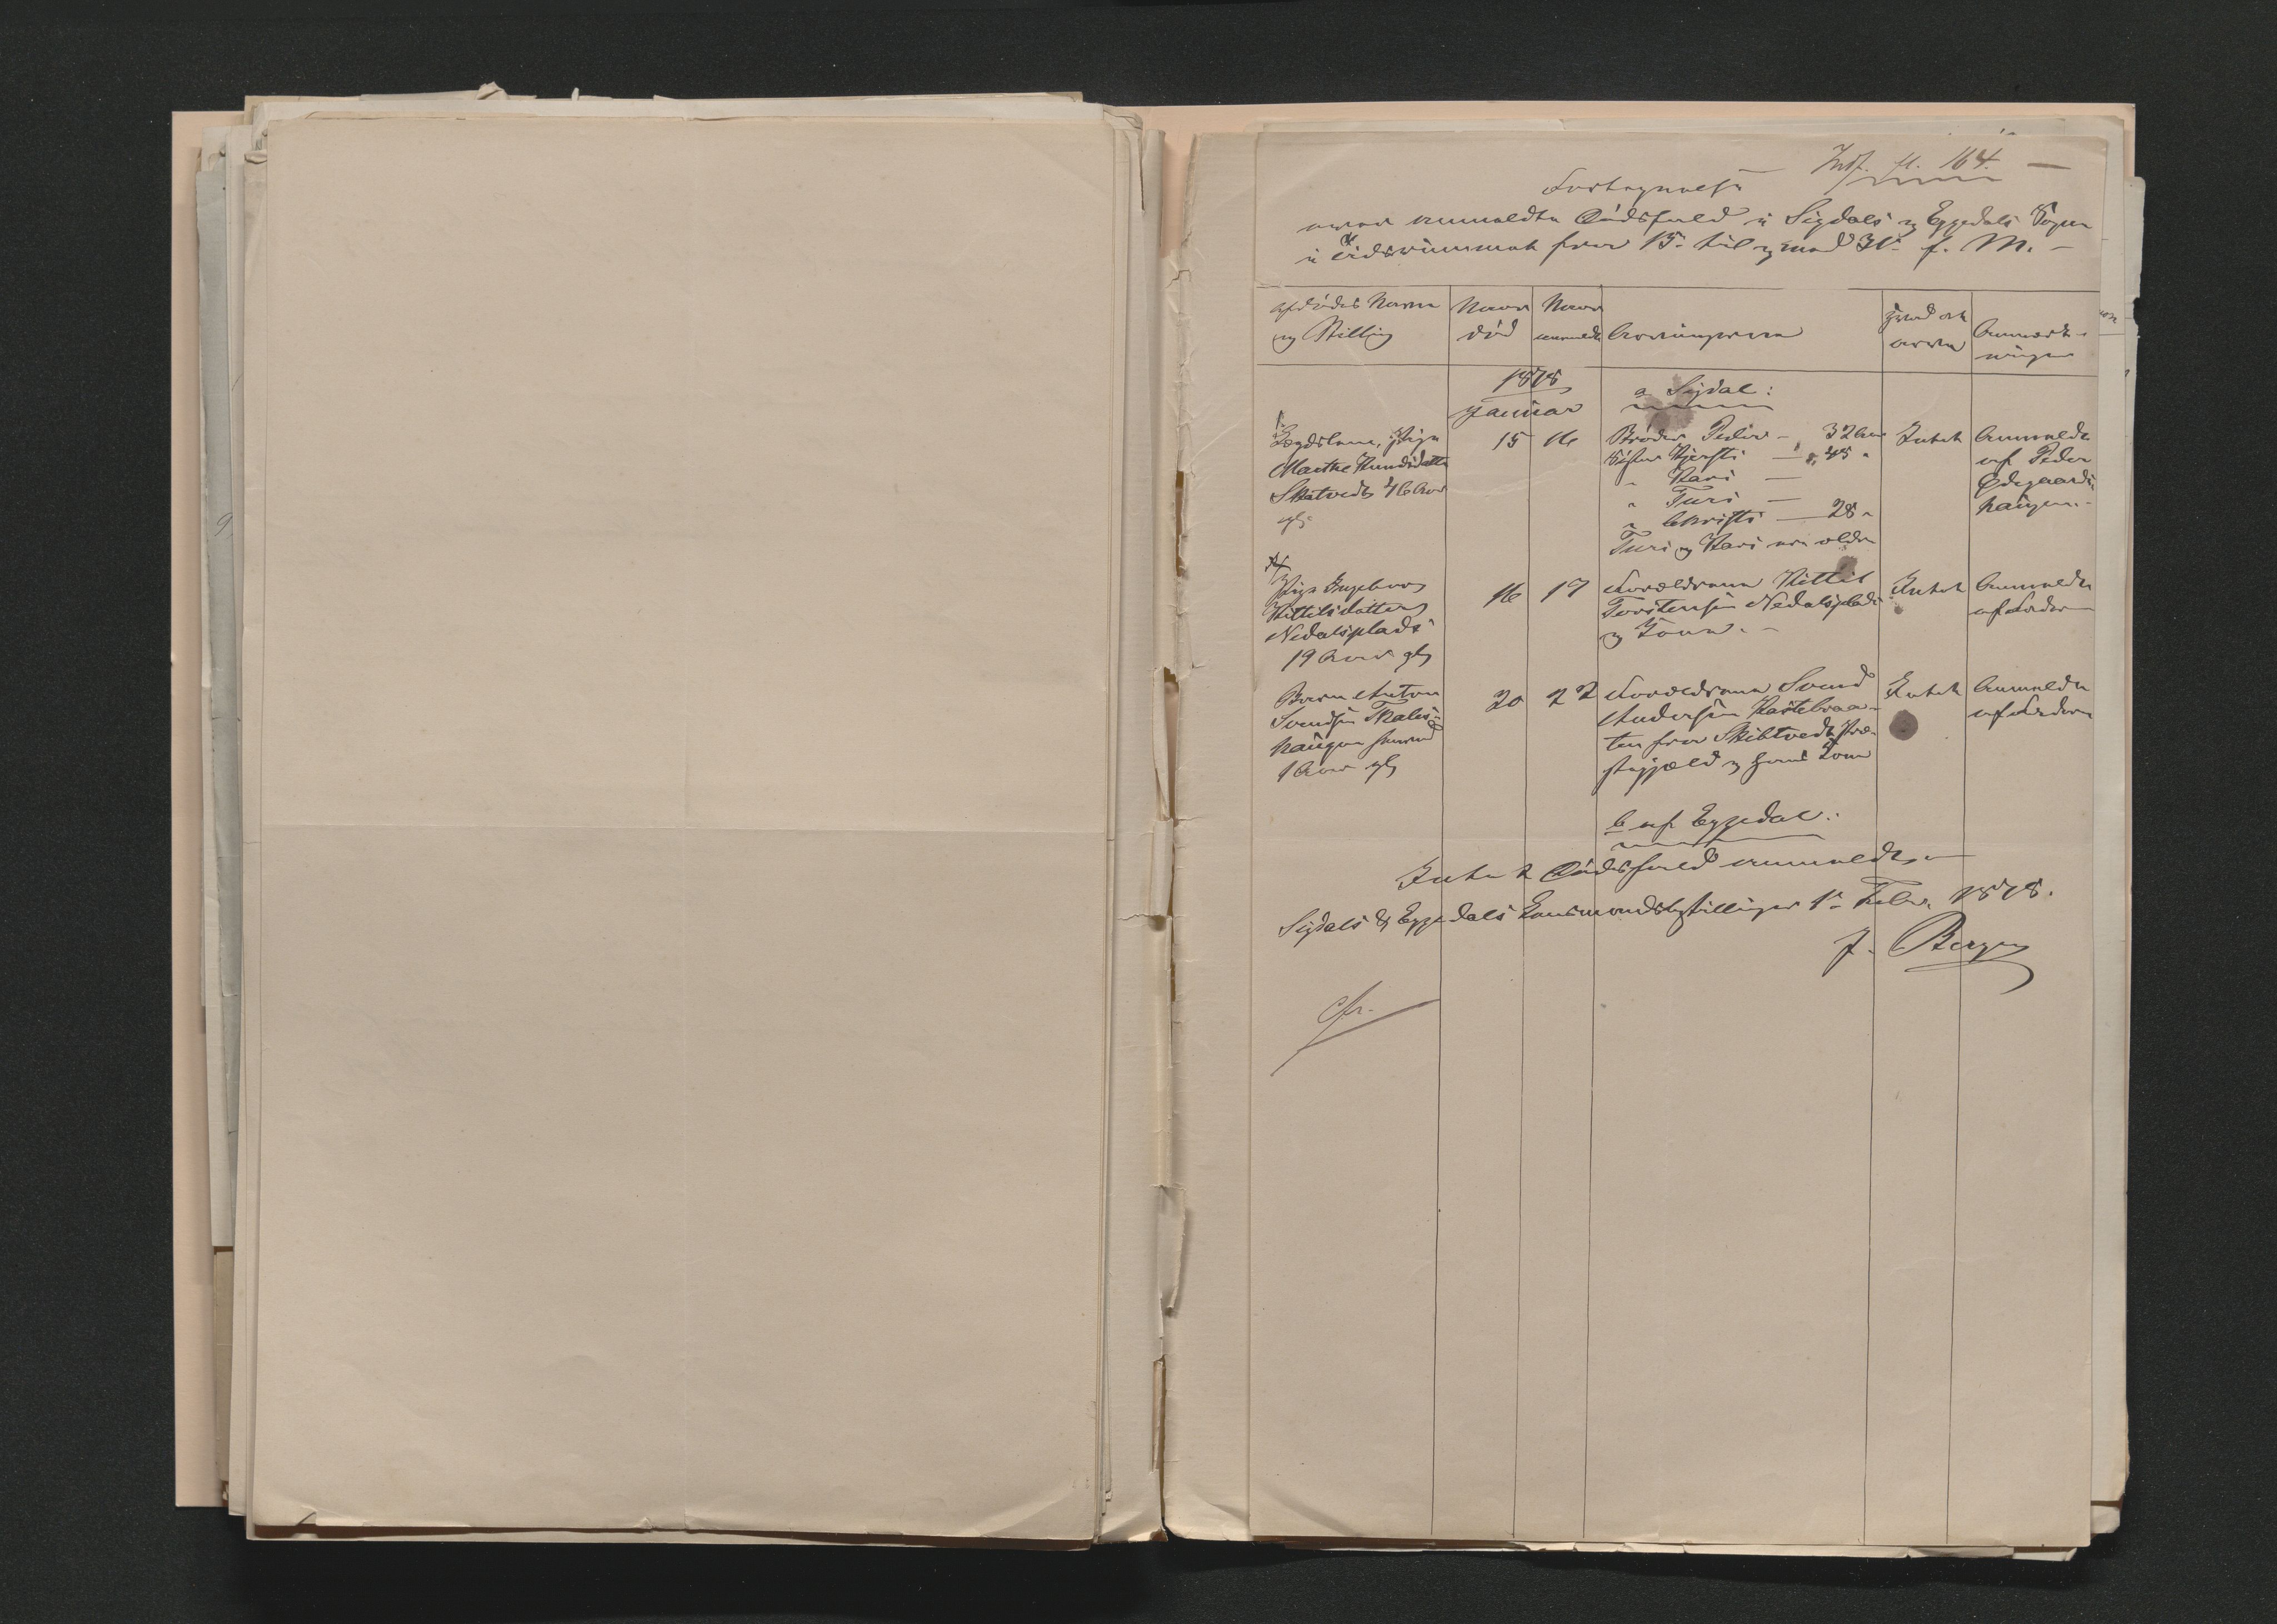 Indf. fl. 164. —
Fortegnelse
over anmeldte Dødsfald i Sigdals og Eggedals Sogne
i Tidsrummet fra 15de til og med 31te f. M. –
Afdødes Navn
og Stilling
Naar
død
Naar
anmeldt
Arvingerne
Hvad at
arve
Anmærk-
ninger
1878
Januar
a Sigdal:
Lægdslem, Pige
Marthe Knudsdatter
Skatvedt 46 Aar
gl
15
16
Broder Peder – 32 Aar
Søster Kjersti — 45 "
" Kari —
" Turi —
" Christi — 28 "
Turi og Kari ere ældre
Intet
Anmeldt
af Peder
Ødegaards-
haugen. -
Pige Ingeborg
Kittilsdatter
Nedalsplads
19 Aar gl
16
17
Forældrene Kittil
Torstensen Nedalsplads
og Kone. –
Intet
Anmeldt
af Faderen
Barn Anton
Svendsen Skals-
haugen
1 Aar gl
20
22
Forældrene Svend
Andersen Kastebraa-
ten fra Skibtvedt Præ-
stegjæld og hans Kone
Intet
Anmeldt
af Faderen
b af Eggedal:
Intet Dødsfald anmeldt. –
Sigdals & Eggedals Lensmandsbestillinger 1te Febr. 1878.
J. Bergen